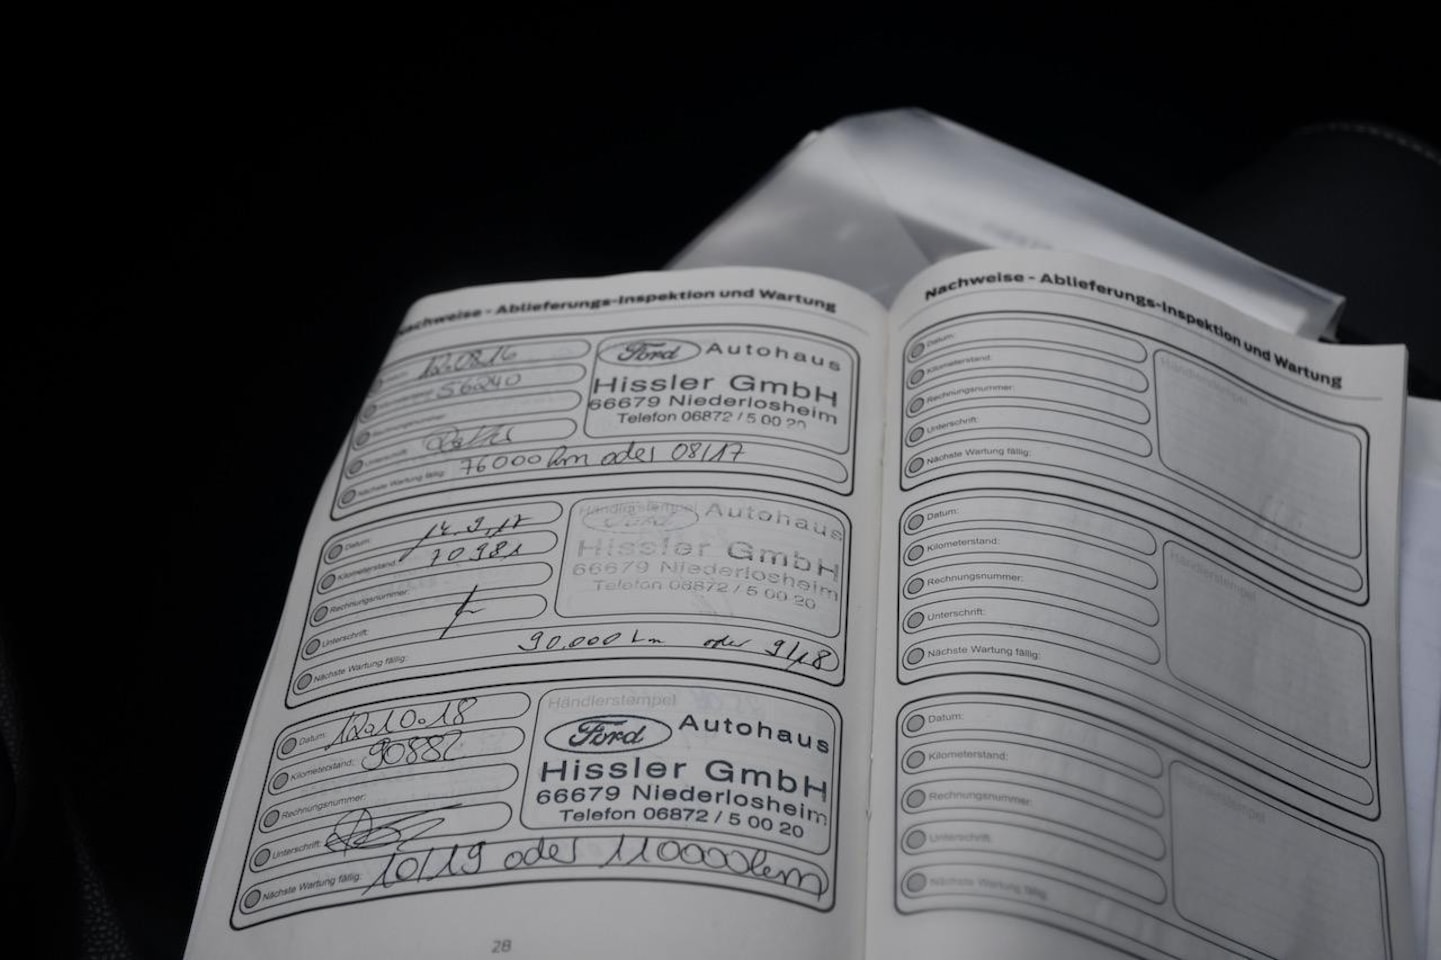 Nachweise - Ablieferungs-Inspektion und Wartung
12.08.16
56240
Unterschrift:
Nächste Wartung fällig: 76000 km oder 08/17
Ford Autohaus
Hissler GmbH
66679 Niederlosheim
Telefon 06872 / 5 00 20
Datum: 14.9.17
Kilometerstand: 70981
Rechnungsnummer:
Unterschrift:
Nächste Wartung fällig: 90.000 km oder 9/18
Händlerstempel
Ford Autohaus
Hissler GmbH
66679 Niederlosheim
Telefon 06872 / 5 00 20
Datum: 12.10.18
Kilometerstand: 90882
Rechnungsnummer:
Unterschrift:
Nächste Wartung fällig: 10/19 oder 110000km
Händlerstempel
Ford Autohaus
Hissler GmbH
66679 Niederlosheim
Telefon 06872 / 5 00 20
28
Nachweise - Ablieferungs-Inspektion und Wartung
Datum:
Kilometerstand:
Rechnungsnummer:
Unterschrift:
Nächste Wartung fällig:
Händlerstempel
Datum:
Kilometerstand:
Rechnungsnummer:
Unterschrift:
Nächste Wartung fällig:
Händlerstempel
Datum:
Kilometerstand:
Rechnungsnummer:
Unterschrift:
Nächste Wartung fällig:
Händlerstempel